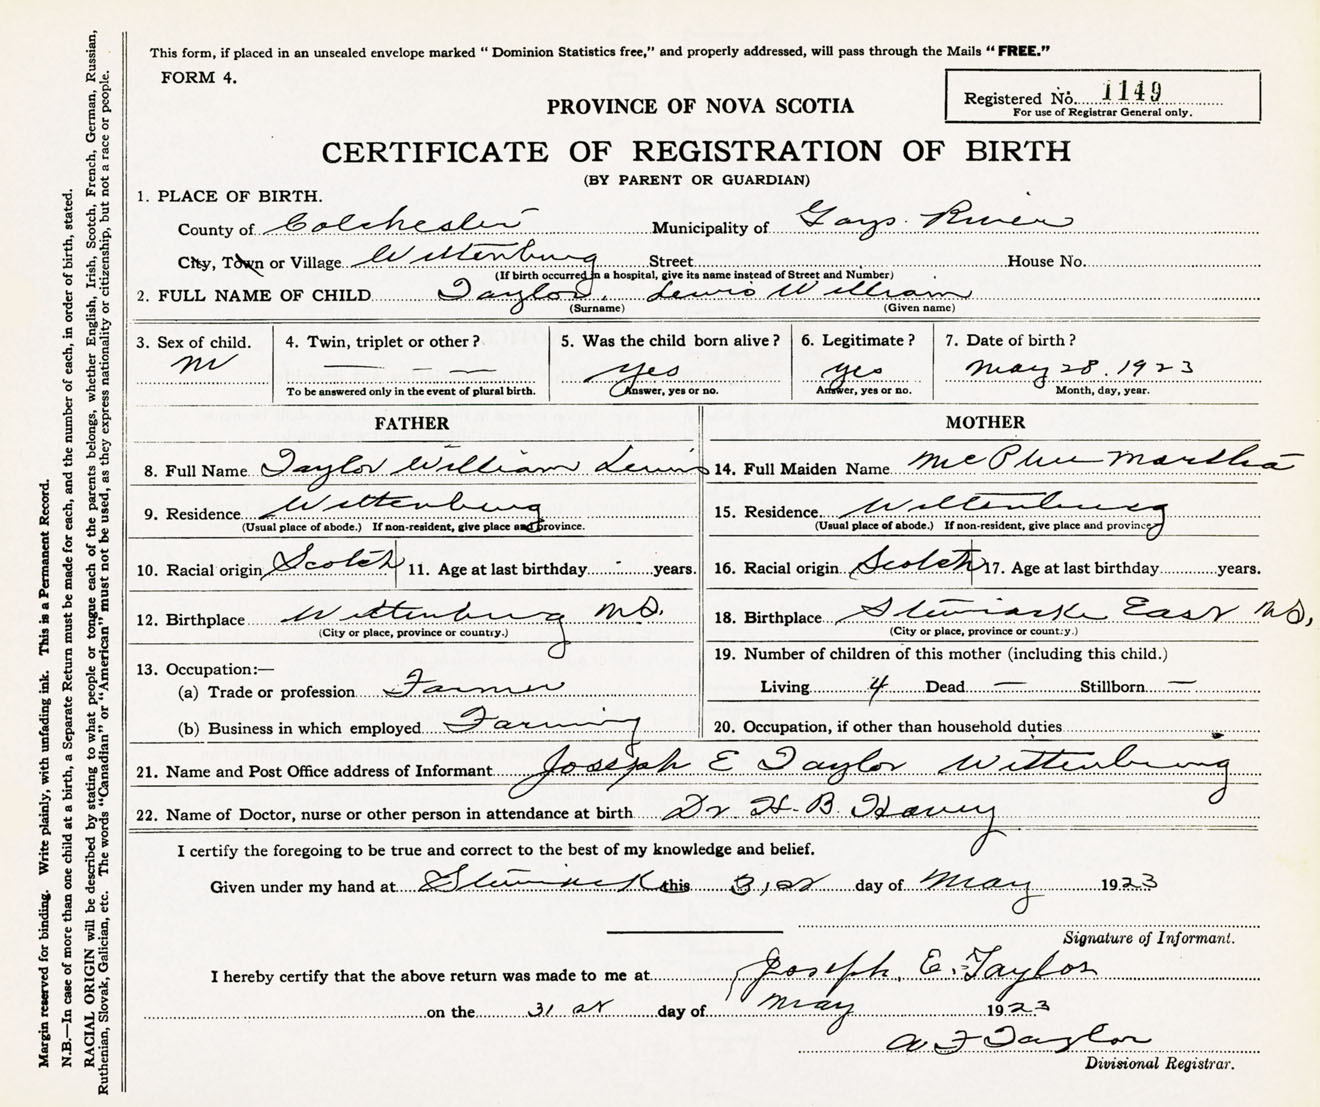 This form, if placed in an unsealed envelope marked "Dominion Statistics free," and properly addressed, will pass through the Mails "FREE."
FORM 4.
Registered No. 1149
For use of Registrar General only.
PROVINCE OF NOVA SCOTIA
CERTIFICATE OF REGISTRATION OF BIRTH
(BY PARENT OR GUARDIAN)
1. PLACE OF BIRTH.
County of Colchester Municipality of Gays River
City, Town or Village Wittenburg Street House No.
(If birth occurred in a hospital, give its name instead of Street and Number)
2. FULL NAME OF CHILD Taylor, Lewis William
(Surname) (Given name)
3. Sex of child. 4. Twin, triplet or other? 5. Was the child born alive? 6. Legitimate? 7. Date of birth?
M — — — yes yes May 28. 1923
To be answered only in the event of plural birth. Answer, yes or no. Answer, yes or no. Month, day, year.
FATHER MOTHER
8. Full Name Taylor William Lewis 14. Full Maiden Name McPhee Martha
9. Residence Wittenburg 15. Residence Wittenburg
(Usual place of abode.) If non-resident, give place and province. (Usual place of abode.) If non-resident, give place and province
10. Racial origin Scotch 11. Age at last birthday years. 16. Racial origin Scotch 17. Age at last birthday years.
12. Birthplace Wittenburg N.S. 18. Birthplace Stewiacke East N.S.
(City or place, province or country.) (City or place, province or country.)
13. Occupation:— 19. Number of children of this mother (including this child.)
(a) Trade or profession Farmer Living 4 Dead — Stillborn —
(b) Business in which employed Farming 20. Occupation, if other than household duties
21. Name and Post Office address of Informant Joseph E Taylor Wittenburg
22. Name of Doctor, nurse or other person in attendance at birth Dr. H. B. Havey
I certify the foregoing to be true and correct to the best of my knowledge and belief.
Given under my hand at Stewiacke this 31st day of May 1923
Signature of Informant.
I hereby certify that the above return was made to me at Joseph. E. Taylor
on the 31 st day of May 1923
A F Taylor
Divisional Registrar.
Margin reserved for binding. Write plainly, with unfading ink. This is a Permanent Record.
N.B.—In case of more than one child at a birth, a Separate Return must be made for each, and the number of each, in order of birth, stated.
RACIAL ORIGIN will be described by stating to what people or tongue each of the parents belongs, whether English, Irish, Scotch, French, German, Russian,
Ruthenian, Slovak, Galician, etc. The words "Canadian" or "American" must not be used, as they express nationality or citizenship, but not a race or people.